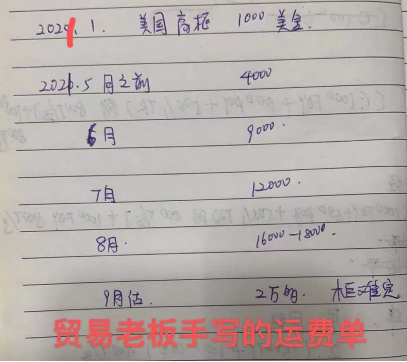 2021.1. 美国高柜 1000美金.
2021.5月之前 4000
6月 9000.
7月 12000.
8月. 16000-18000.
9月估. 2万多. 柜难定
贸易老板手写的运费单